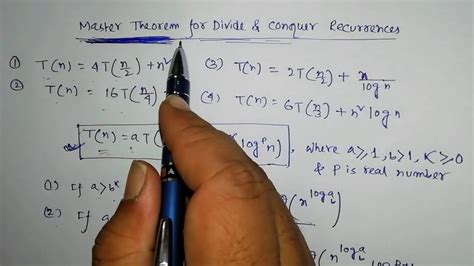 Master Theorem for Divide & Conquer Recurrences
① T(n) = 4T(n/2) + n²
② T(n) = 16T(n/4)
(3) T(n) = 2T(n/2) + n/log n
(4) T(n) = 6T(n/3) + n² log n
T(n) = aT( log^p n), where a≥1, b>1, K≥0
& P is real number
(1) If a>b^k
(2) If a n^(log_b a)
n^(log_b a)